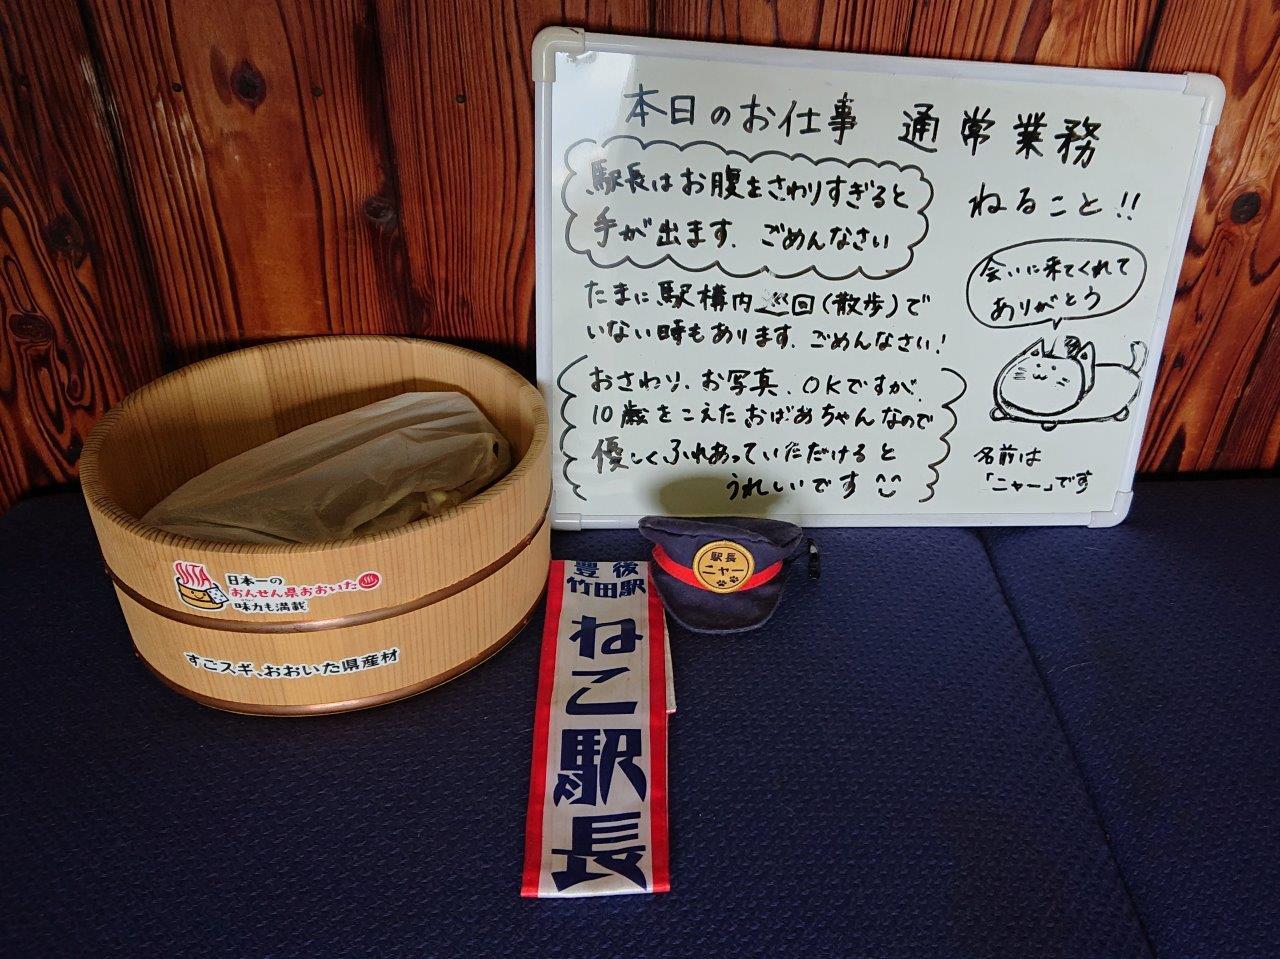 本日のお仕事 通常業務
ねること!!
駅長はお腹をさわりすぎると
手が出ます。ごめんなさい
たまに駅構内巡回(散歩)で
いない時もあります。ごめんなさい!
おさわり、お写真、OKですが、
10歳をこえたおばあちゃんなので
優しくふれあっていただけると
うれしいです^^
会いに来てくれて
ありがとう
名前は
「ニャー」です
駅長
ニャー
豊後
竹田駅
ねこ駅長
OITA
日本一の
おんせん県おおいた♨
味力も満載
すごスギ、おおいた県産材